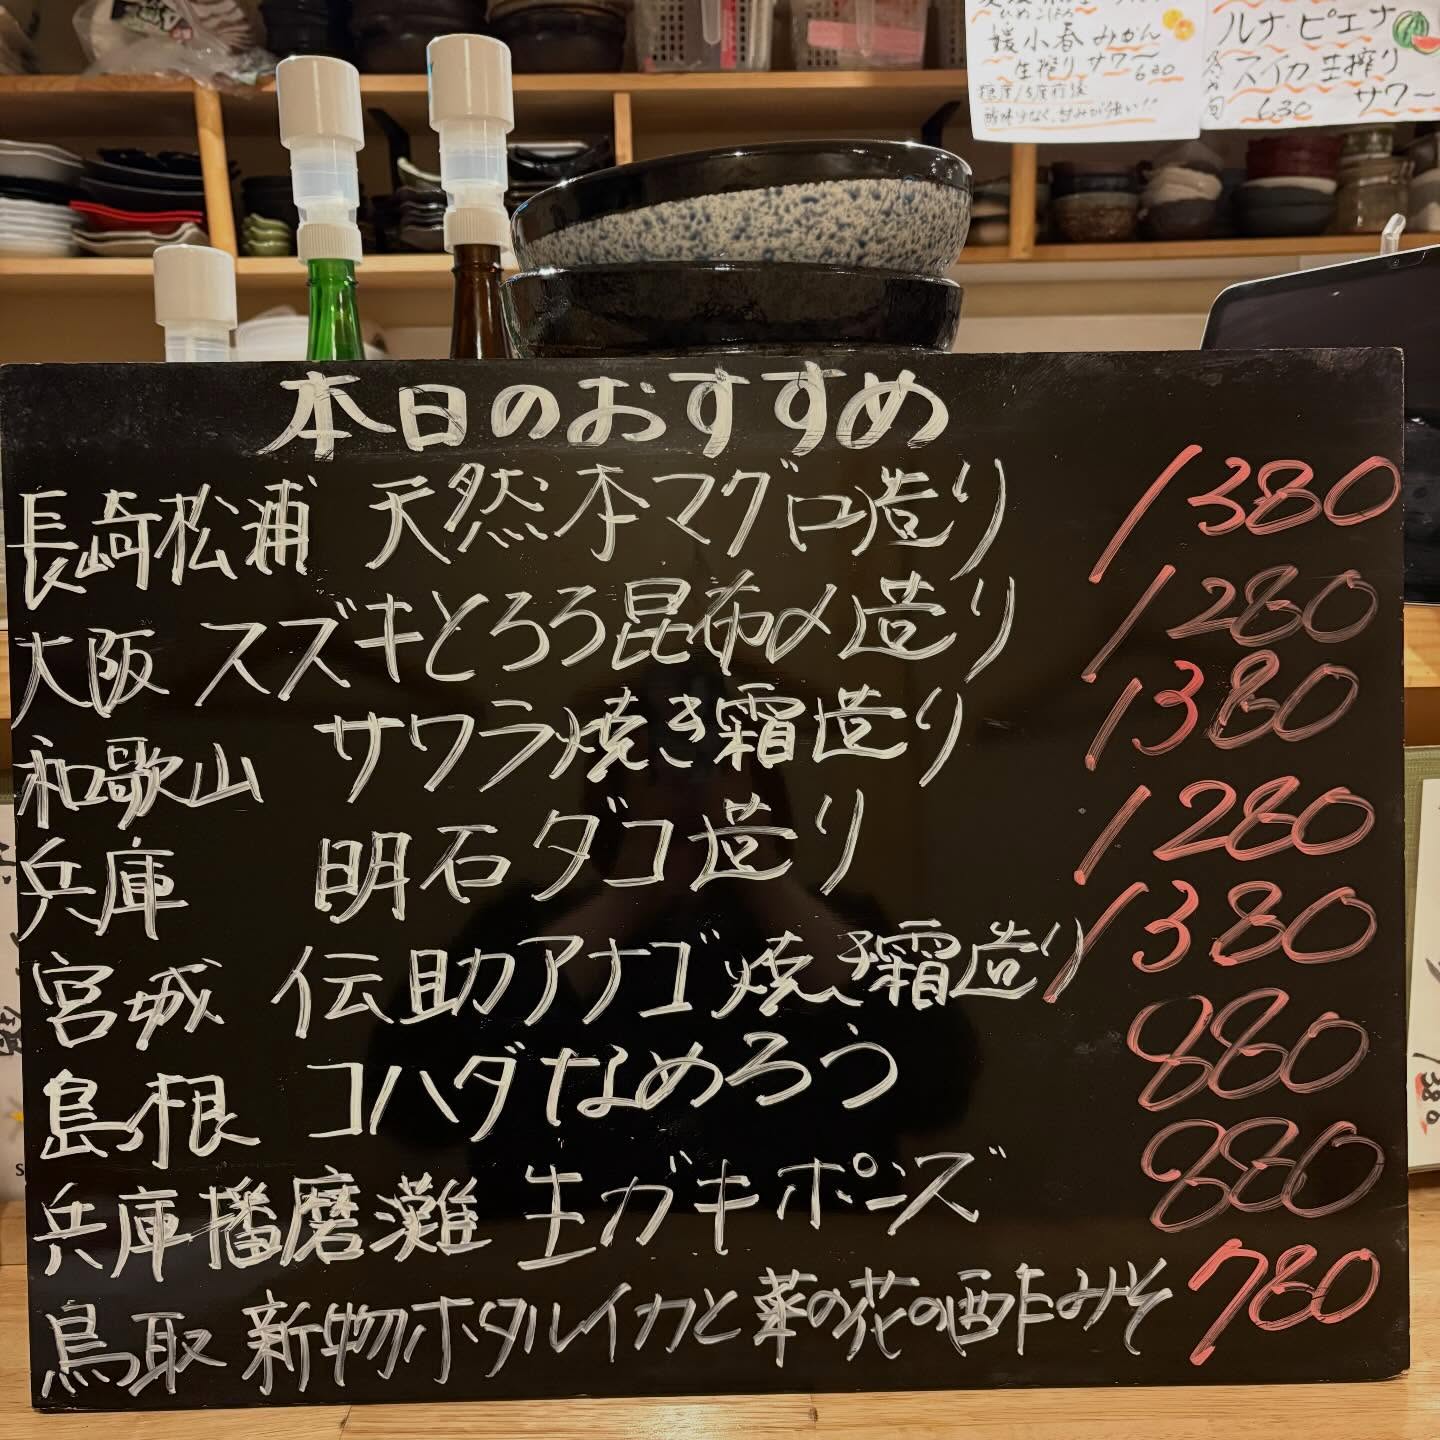 媛小春みかん
生搾りサワー
620
ルナ・ピエナ
スイカ生搾り
サワー
630
本日のおすすめ
長崎松浦 天然本マグロ造り 1380
大阪 スズキとろろ昆布〆造り 1280
和歌山 サワラ焼き霜造り 1380
兵庫 明石ダコ造り 1280
宮城 伝助アナゴ焼き霜造り 1380
島根 コハダなめろう 880
兵庫播磨灘 生ガキポンズ 880
鳥取 新物ホタルイカと菜の花の酢みそ 780